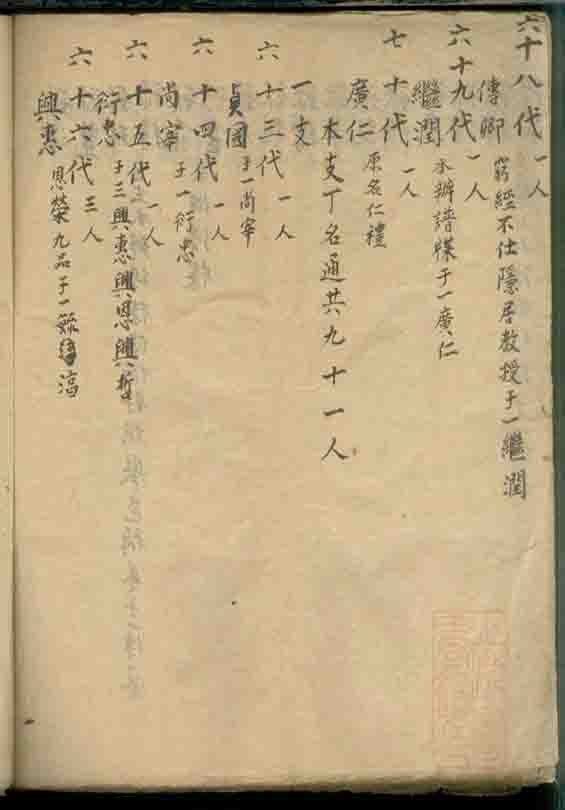 六十八代一人
傳卿 窮經不仕隱居教授子一繼潤
六十九代一人
繼潤 承辦譜牒子一廣仁
七十代一人
廣仁 原名仁禮
本支丁名通共九十一人
一支
六十三代一人
貞國 子一尚宰
六十四代一人
尚宰 子一衍忠
六十五代一人
衍忠 子三興惠興恩興哲
六十六代三人
興惠 恩榮九品子一毓